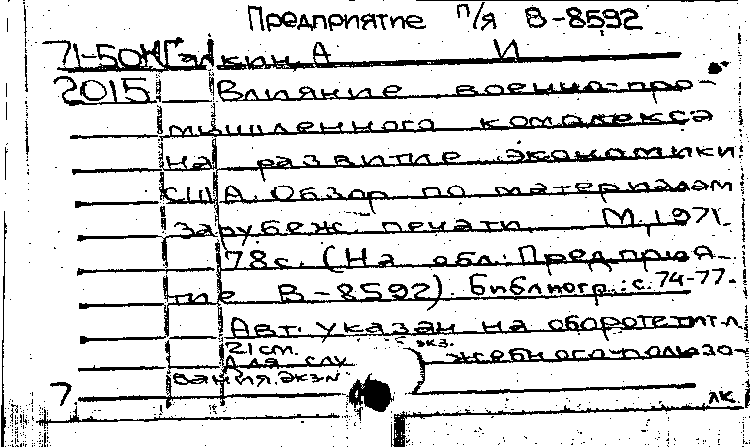 Предприятие п/я В-8592
71-50к Галкин, А И
2015 Влияние военно-про-
мышленного комплекса
на развитие экономики
США. Обзор по материалам
зарубеж. печати. М., 1971.
78с. (На обл: Предприя-
тие В-8592). Библиогр.: с. 74-77.
Авт. указан на обороте тит. л.
21 см. экз.
Для слу жебного пользо-
вания. Экз №
7 лк